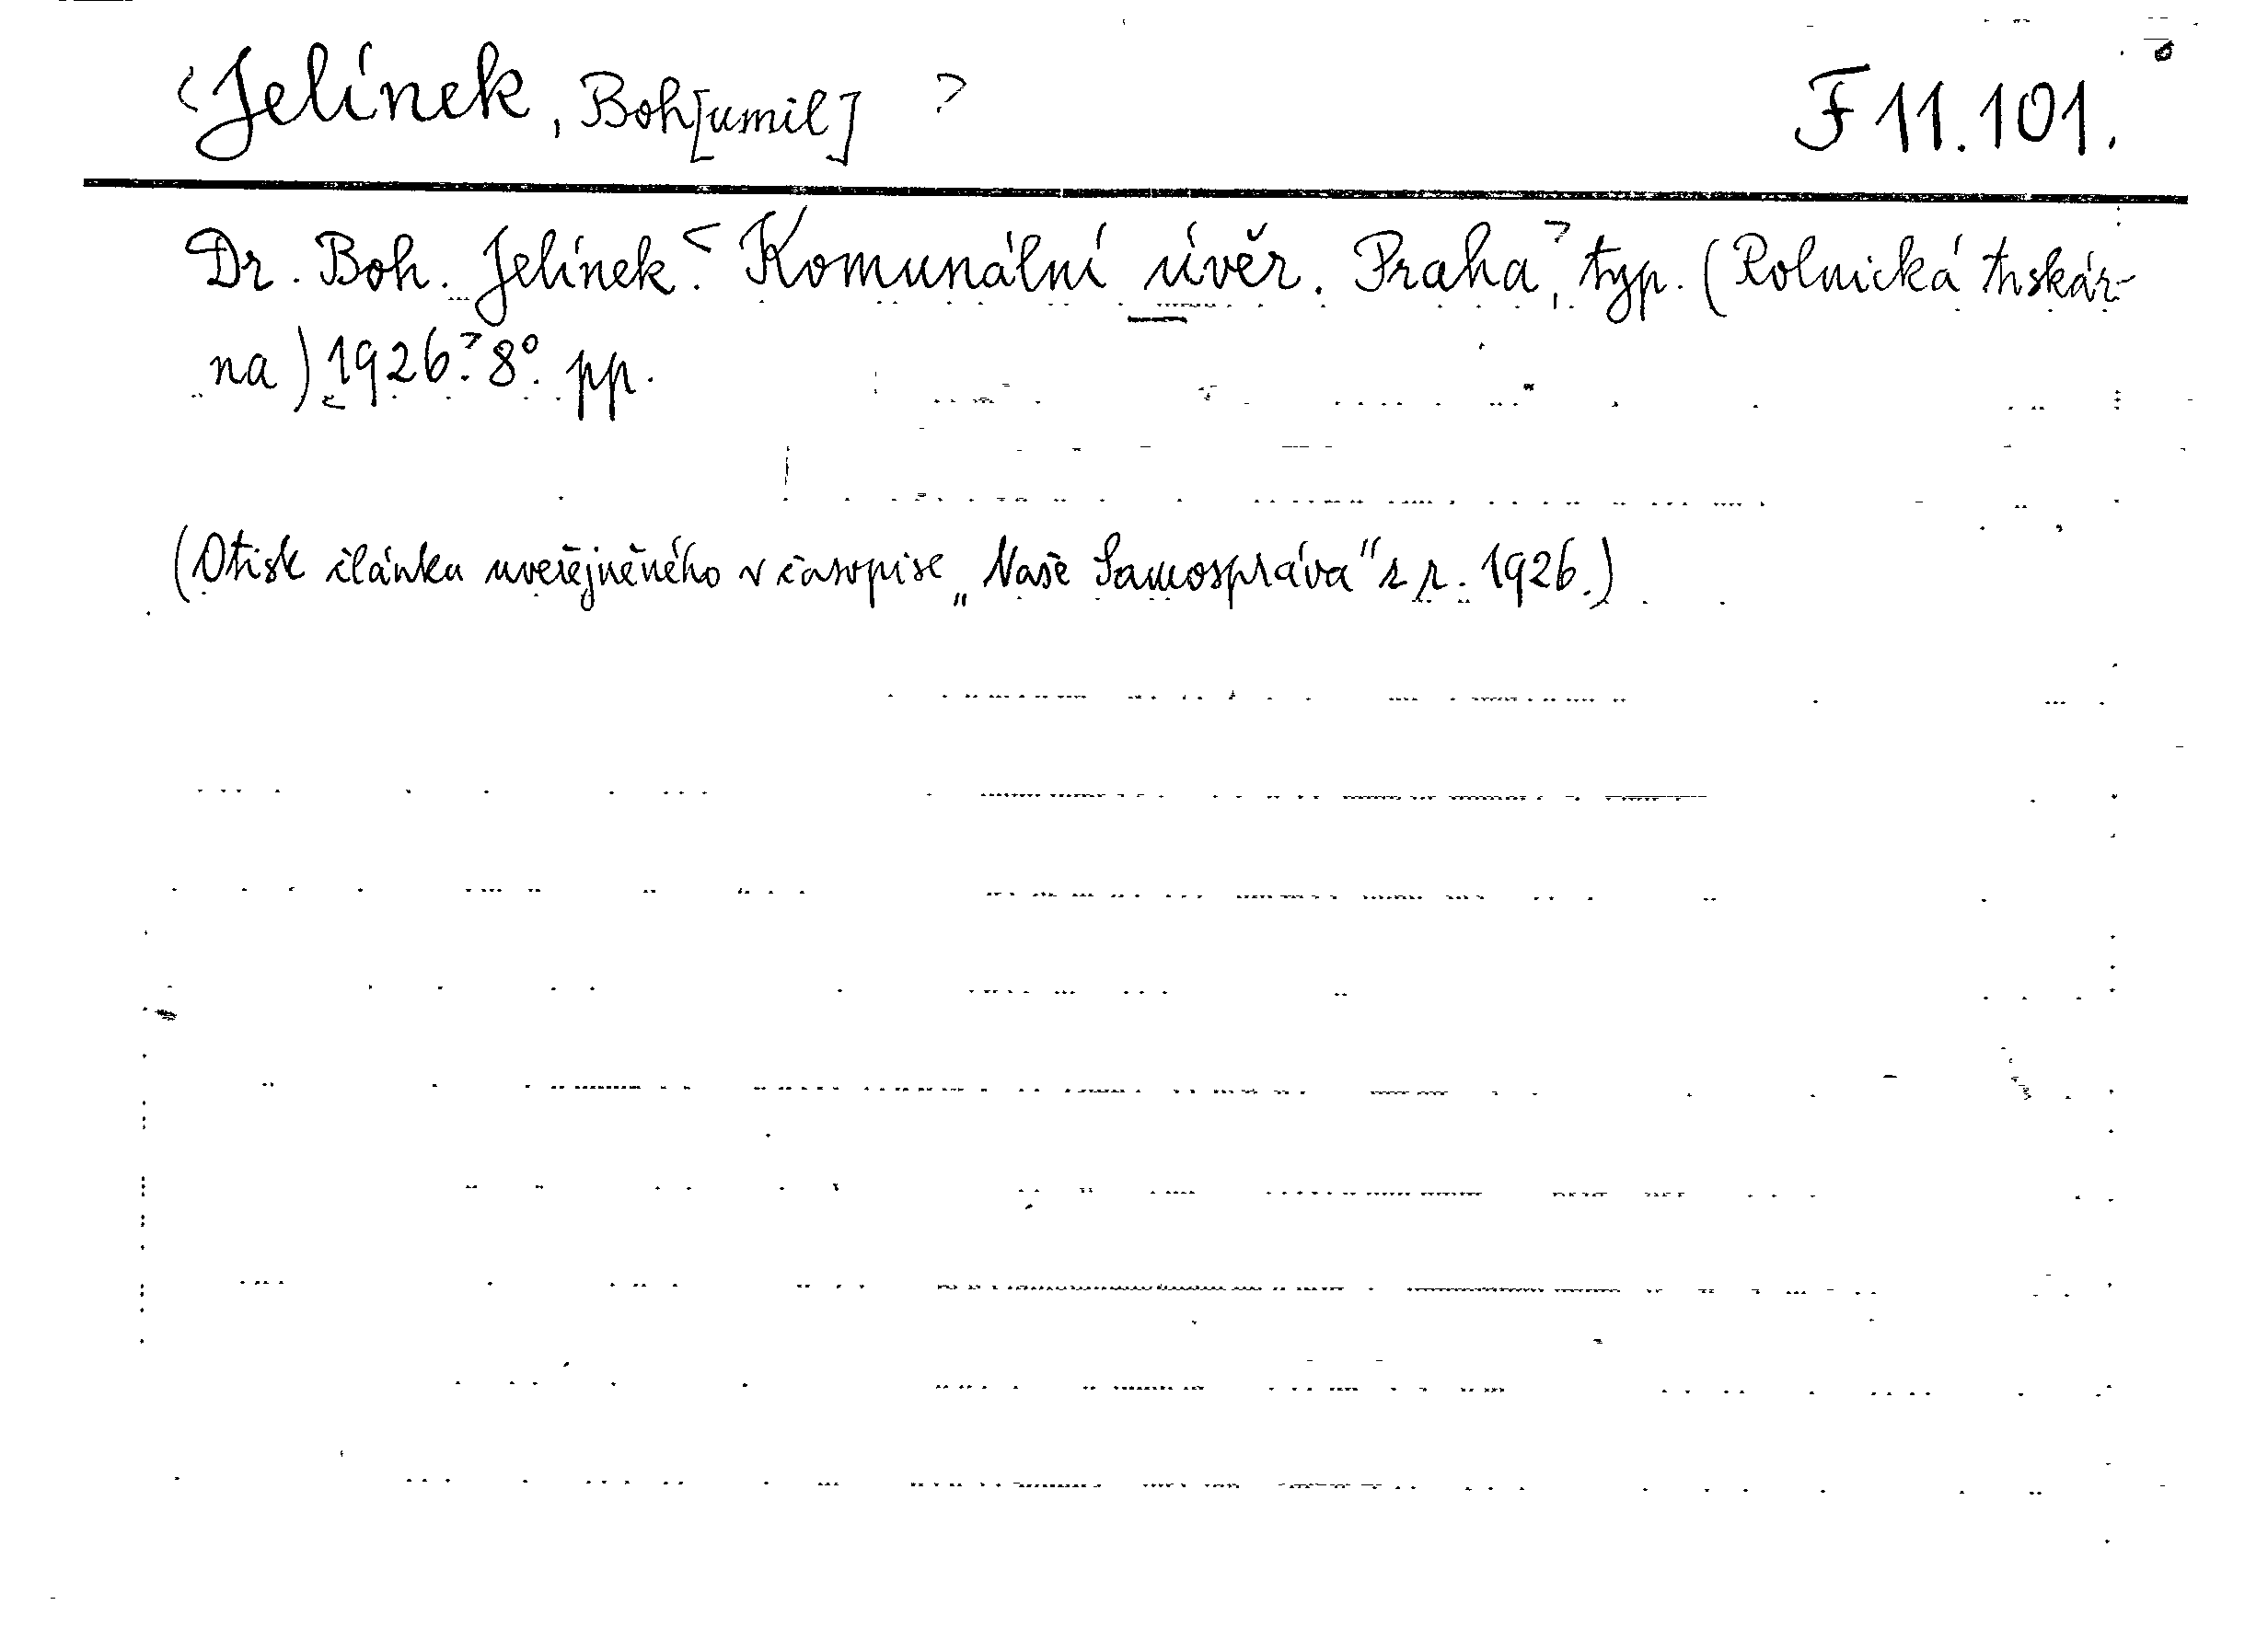 Jelínek, Boh[umil] F 11.101.
Dr. Boh. Jelínek. Komunální úvěr. Praha, typ. (Rolnická tiskár-
na) 1926. 8°. pp.
(Otisk článku uveřejněného v časopise „Naše Samospráva" z r. 1926.)